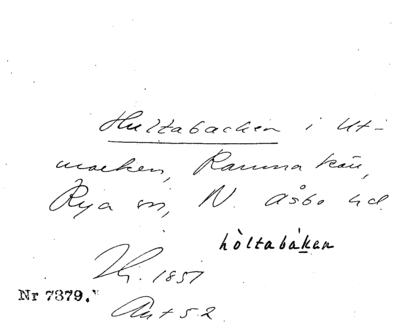 Hultabacken i Ut-
marken, Ramnakär,
Rya sn, N. Åsbo hd.
hòltabàken
Hj. 1851
Nr 7379.
Ant 52